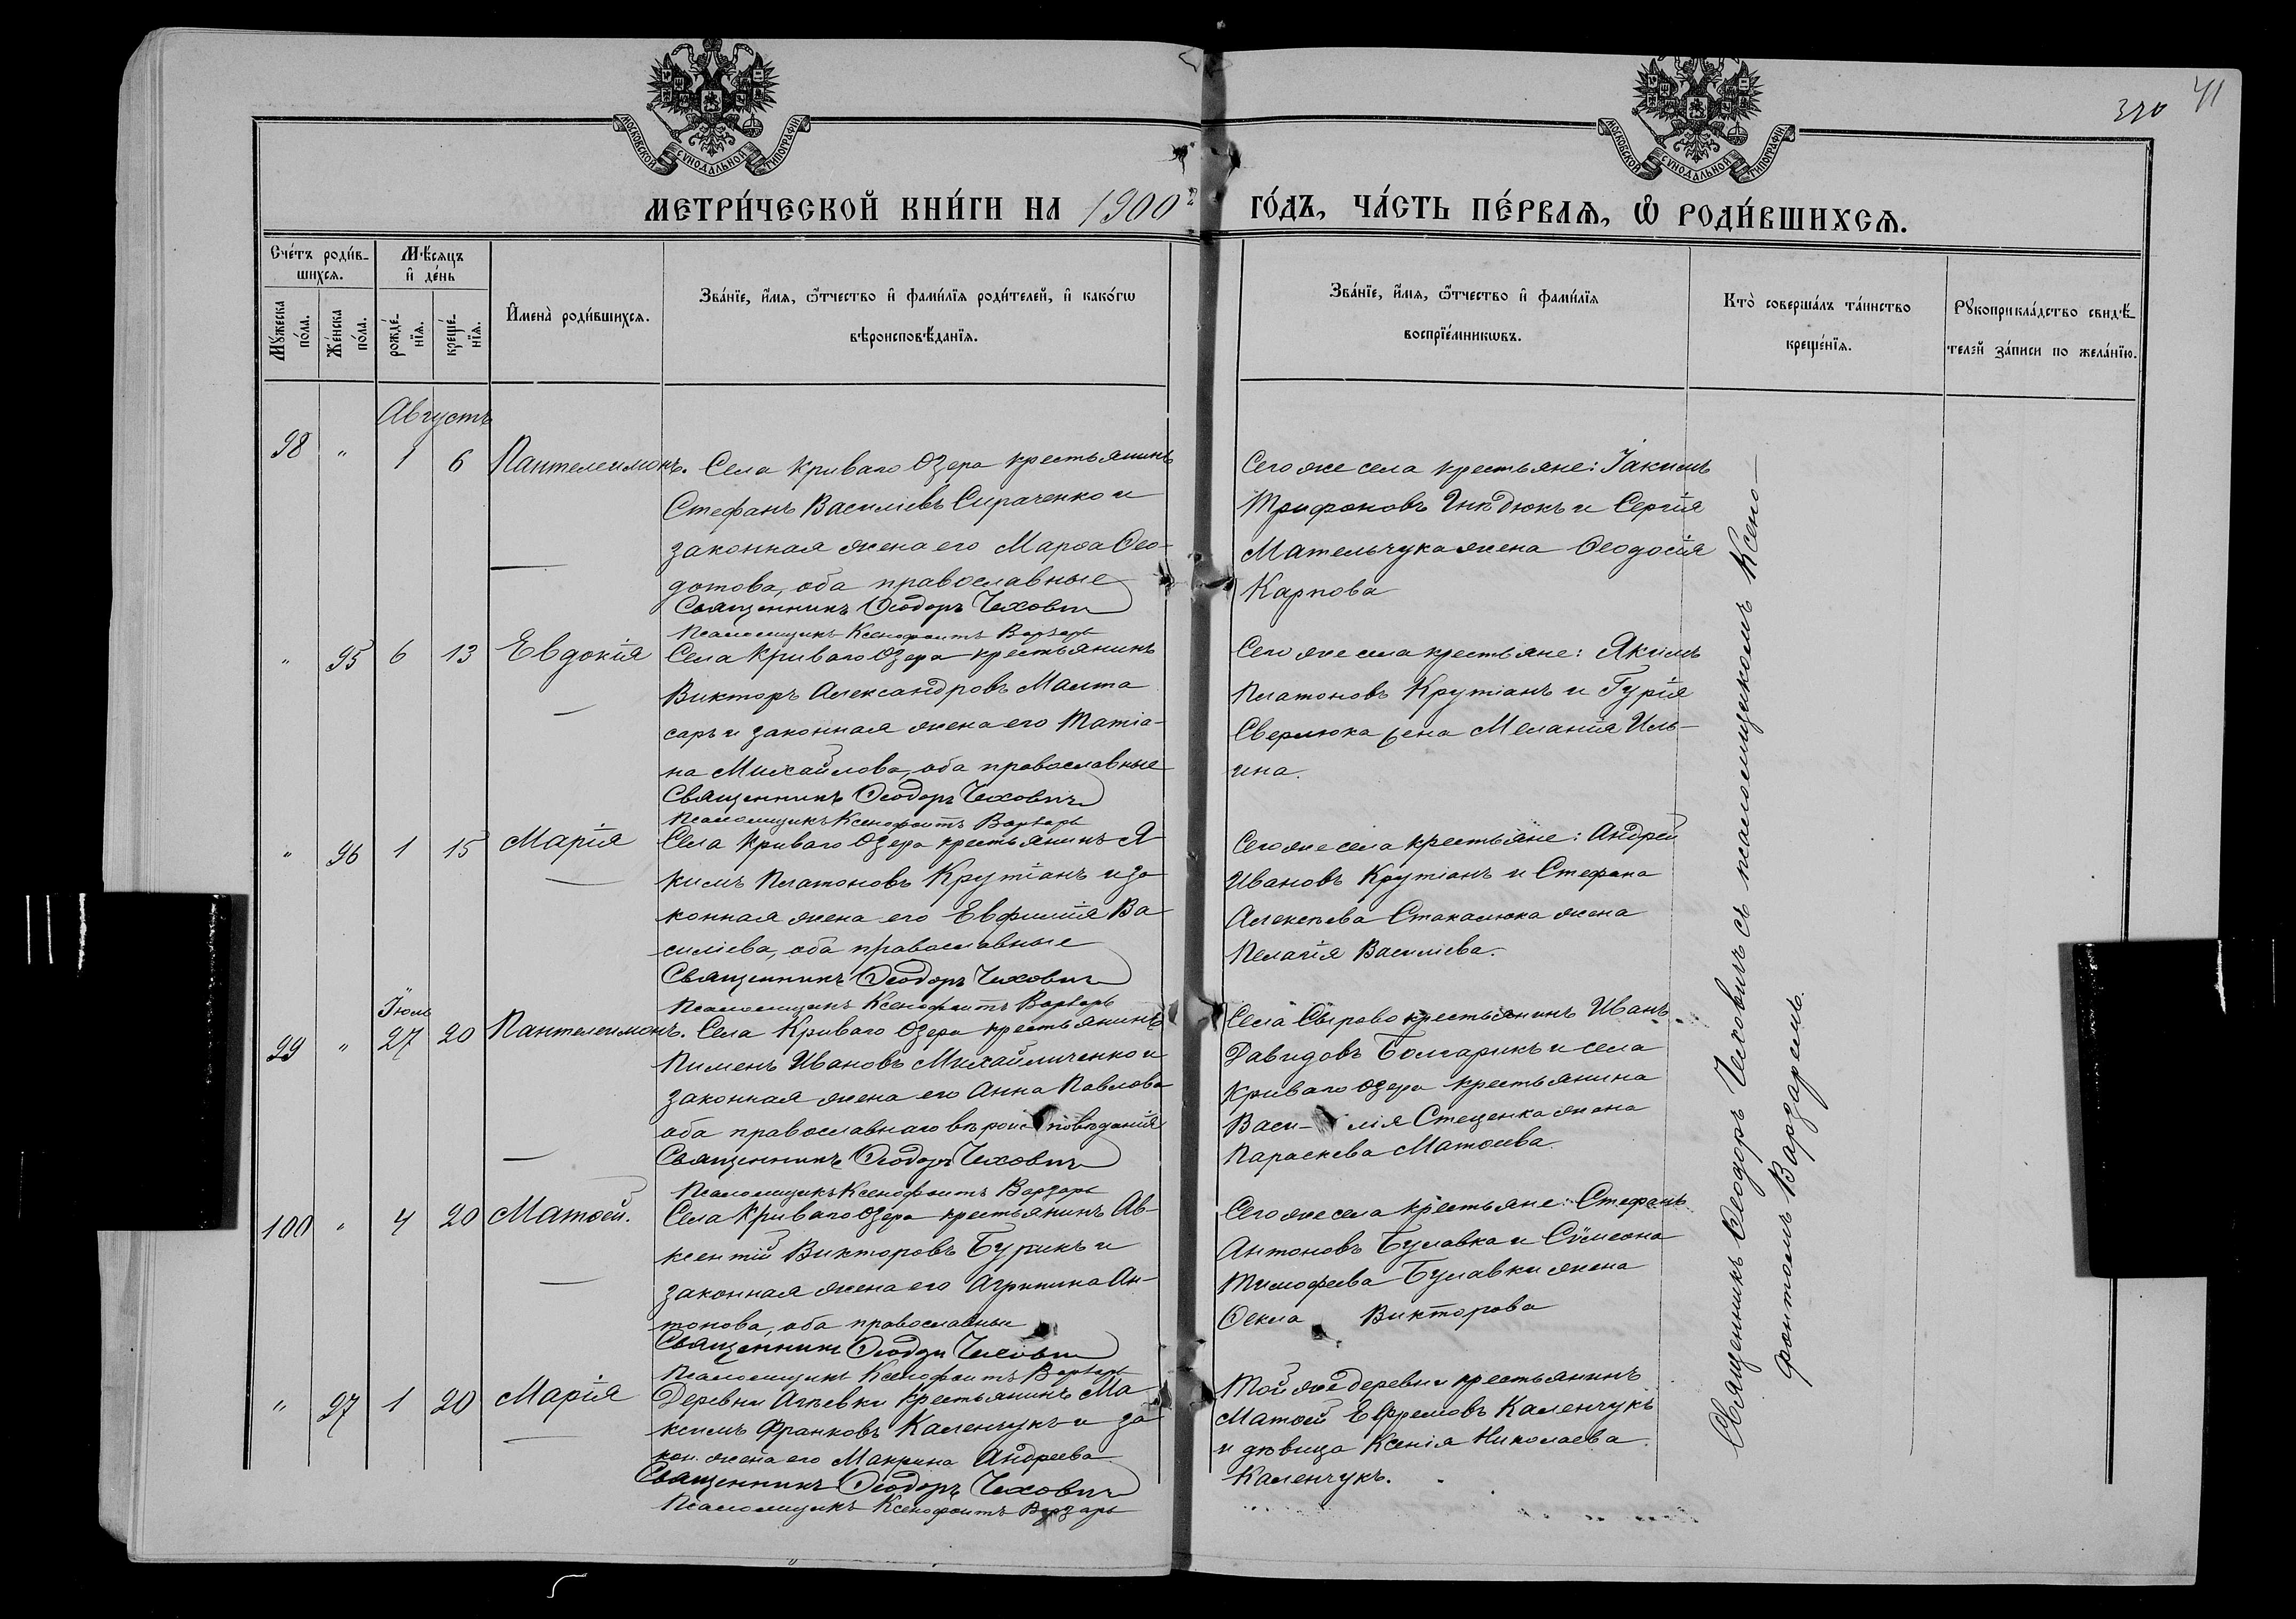 320 41
МОСКОВСКОЙ СѴНОДАЛЬНОЙ ТИПОГРАФІИ
МОСКОВСКОЙ СѴНОДАЛЬНОЙ ТИПОГРАФІИ
МЕТРИ́ЧЕСКОЙ КНИ́ГИ НА 1900 г ГО́ДЪ, ЧА́СТЬ ПЕ́РВАѦ, Ѡ҆ РОДИ́ВШИХСѦ.
Сче́тъ роди́в-
шихсѧ.
Мѣ́сѧцъ
и҆ де́нь
Мꙋ́жеска
по́ла.
Же́нска
по́ла.
рожде́-
нїѧ.
креще́-
нїѧ.
И҆мена̀ роди́вшихсѧ.
Зва́нїе, и҆́мѧ, ѻ҆́тчество и҆ фами́лїѧ роди́телей, и҆ како́гѡ
вѣроисповѣ́данїѧ.
Зва́нїе, и҆́мѧ, ѻ҆́тчество и҆ фами́лїѧ
воспрїе́мникѡвъ.
Кто̀ соверша́лъ та́инство
креще́нїѧ.
Рꙋкоприкла́дство свидѣ́-
телей за́писи по жела́нїю.
Августъ
98 " 1 6 Пантелеимонъ. Села Криваго Озера крестьянинъ
Стефанъ Василіевъ Сираченко и
законная жена его Марѳа Ѳео-
дотова, оба православные
Священникъ Ѳеодоръ Чеховичъ
Псаломщикъ Ксенофонтъ Варзарь
Сего же села крестьяне: Іакимъ
Трифоновъ Гнѣдюкъ и Сергія
Мательчука жена Ѳеодосія
Карпова
" 95 6 13 Евдокія Села Криваго Озера крестьянинъ
Викторъ Александровъ Малта
саръ и законная жена его Татіа-
на Михайлова, оба православные
Священникъ Ѳеодоръ Чеховичъ
Псаломщикъ Ксенофонтъ Варзарь
Сего же села крестьяне: Якимъ
Платоновъ Крутіанъ и Гурія
Сверлюка жена Меланія Иль-
ина.
" 96 1 15 Марія Села Криваго Озера крестьянинъ Я-
кимъ Платоновъ Крутіанъ и за
конная жена его Евфимія Ва
силіева, оба православные
Священникъ Ѳеодоръ Чеховичъ
Псаломщикъ Ксенофонтъ Варзарь
Сего же села крестьяне: Андрей
Ивановъ Крутіанъ и Стефана
Алексѣева Стакалюка жена
Пелагія Василіева.
Іюль
99 " 27 20 Пантелеимонъ. Села Криваго Озера крестьянинъ
Пименъ Ивановъ Михайличенко и
законная жена его Анна Павлова
оба православнаго вѣроисповѣданія
Священникъ Ѳеодоръ Чеховичъ
Псаломщикъ Ксенофонтъ Варзарь
Села Сырово крестьянинъ Иванъ
Давидовъ Болгарикъ и села
Криваго Озера крестьянина
Васи- лія Стеценка жена
Параскева Матѳеева.
100 " 4 20 Матѳей. Села Криваго Озера крестьянинъ Ав-
ксентій Викторовъ Бурикъ и
законная жена его Агрипина Ан-
тонова, оба православные
Священникъ Ѳеодоръ Чеховичъ
Псаломщикъ Ксенофонтъ Варзарь
Сего же села крестьяне: Стефанъ
Антоновъ Булавка и Сѵмеона
Тимофеева Булавки жена
Ѳекла Викторова
" 97 1 20 Марія Деревни Агѣевки крестьянинъ Ма
ксимъ Франковъ Каленчукъ и за
кон. жена его Макрина Андреева
Священникъ Ѳеодоръ Чеховичъ
Псаломщикъ Ксенофонтъ Варзарь
Той же деревни крестьянинъ
Матѳей Ефремовъ Каленчукъ
и дѣвица Ксенія Николаева
Каленчукъ.
Священникъ Ѳеодоръ Чеховичъ съ псаломщикомъ Ксено-
фонтомъ Варзаремъ.